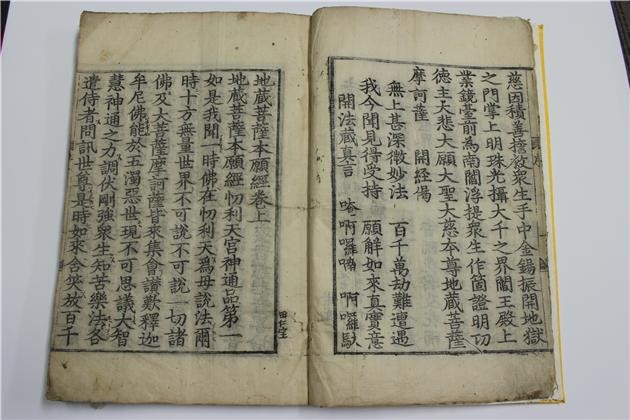 慈因積善誓救衆生手中金錫振開地獄
之門掌上明珠光攝大千之界閻王殿上
業鏡臺前為南閻浮提衆生作箇證明功
德主大悲大願大聖大慈本尊地藏菩薩
摩訶薩　開經偈
無上甚深微妙法　百千萬劫難遭遇
我今聞見得受持　願解如來真實意
開法藏真言　唵 啊囉喃 啊囉馱
地藏菩薩本願經卷上
地藏菩薩本願經忉利天宮神通品第一
如是我聞一時佛在忉利天爲母說法爾
時十方無量世界不可說不可說一切諸
佛及大菩薩摩訶薩皆來集會讃歎釋迦
牟尼佛能於五濁惡世現不可思議大智
慧神通之力調伏剛強衆生知苦樂法各
遣侍者問訊世尊是時如來含笑放百千